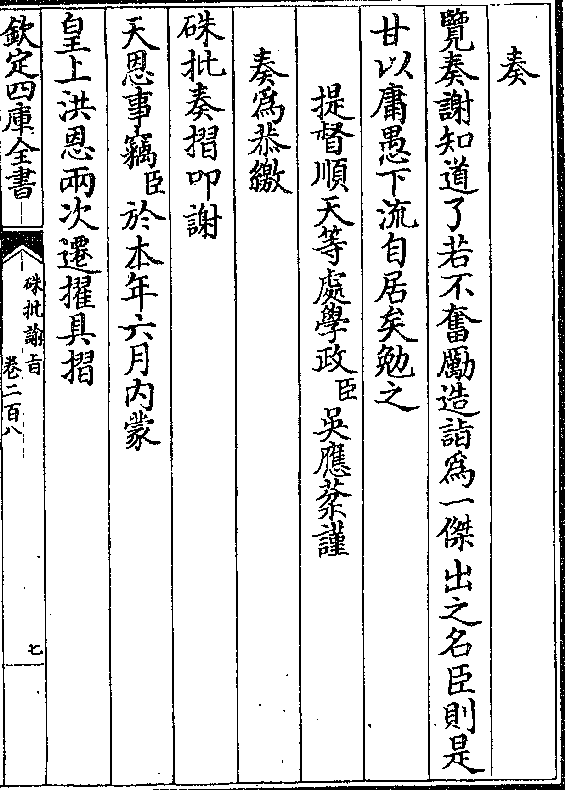 奏
覽奏謝知道了若不奮勵造詣爲一傑出之名臣則是
甘以庸愚下流自居矣勉之
提督順天等處學政臣吳應棻謹
奏爲恭繳
硃批奏摺叩謝
天恩事竊臣於本年六月内蒙
皇上洪恩兩次遷擢具摺
欽定四庫全書
硃批諭旨
卷二百八
七